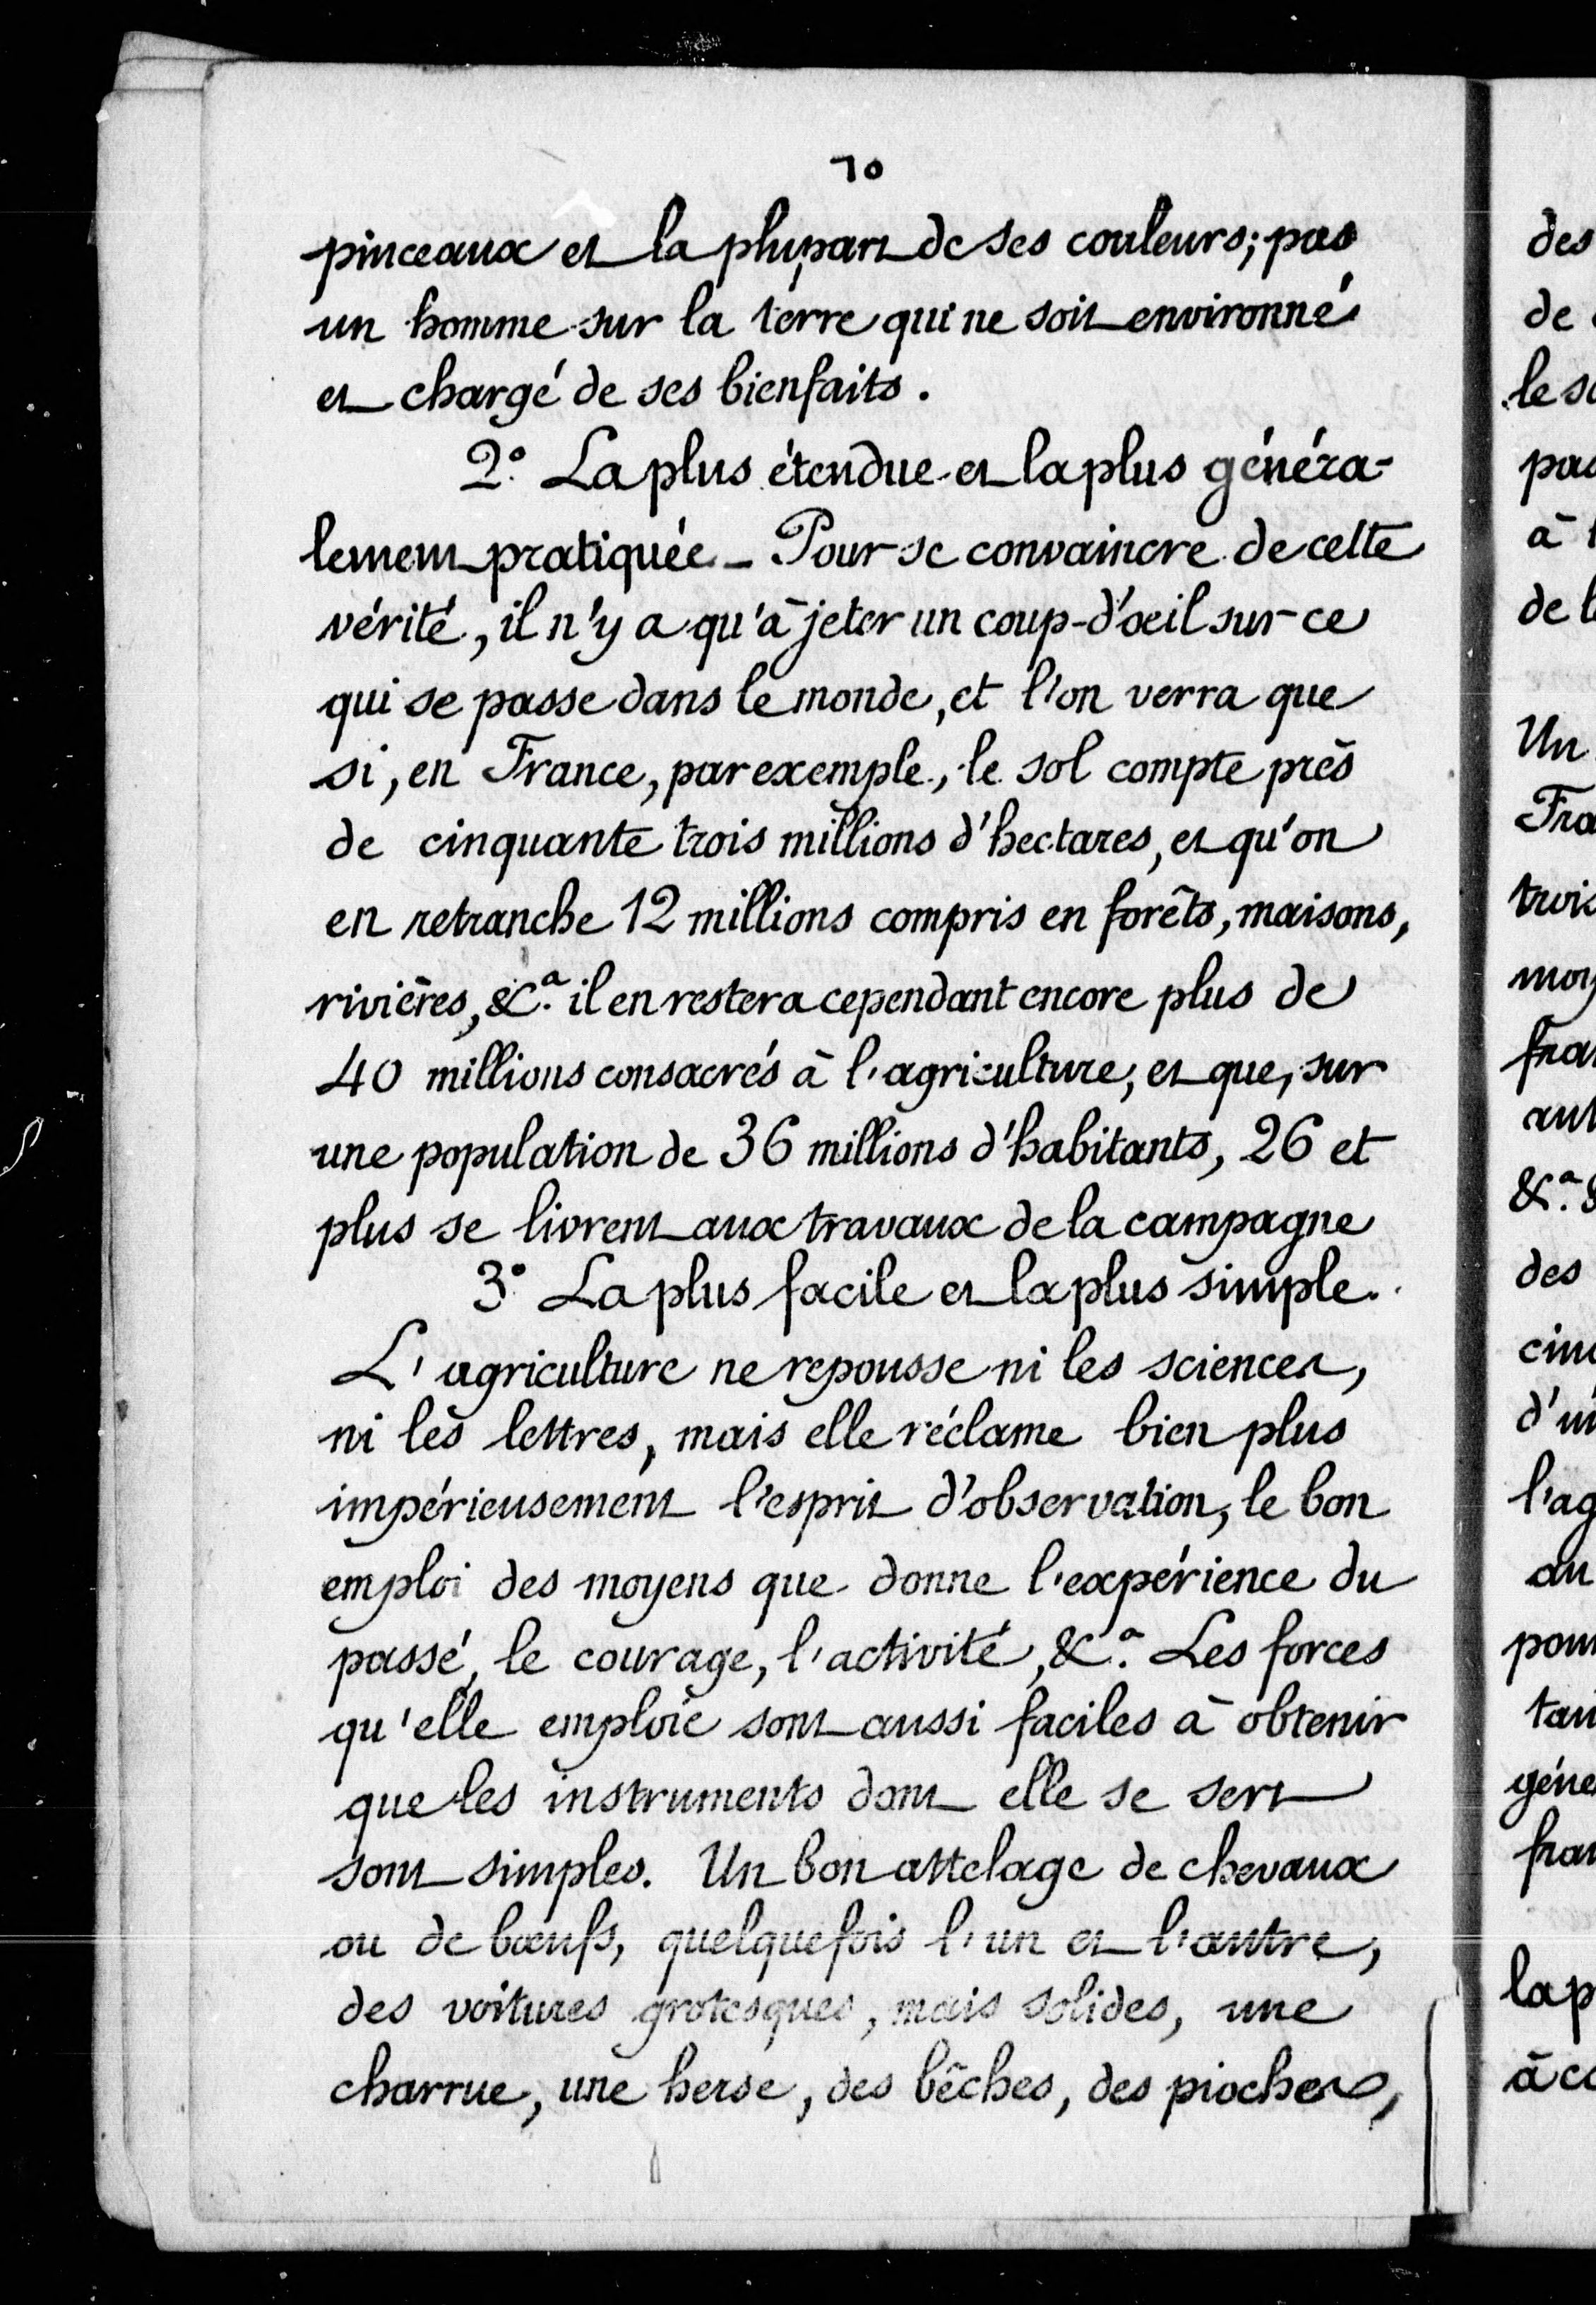 70
pinceaux et la plupart de ses couleurs; pas
un homme sur la terre qui ne soit environné
et chargé de ses bienfaits.
2.° La plus étendue et la plus généra-
lement pratiquée _ Pour se convaincre de cette
vérité, il n'y a qu'à jeter un coup-d'œil sur ce
qui se passe dans le monde, et l'on verra que
si, en France, par exemple, le sol compte près
de cinquante trois millions d'hectares, et qu'on
en retranche 12 millions compris en forêts, maisons,
rivières, &.ª il en restera cependant encore plus de
40 millions consacrés à l'agriculture, et que, sur
une population de 36 millions d'habitants, 26 et
plus se livrent aux travaux de la campagne
3.° La plus facile et la plus simple.
L'agriculture ne repousse ni les sciences,
ni les lettres, mais elle réclame bien plus
impérieusement l'esprit d'observation, le bon
emploi des moyens que donne l'expérience du
passé, le courage, l'activité, &.ª Les forces
qu'elle emploie sont aussi faciles à obtenir
que les instruments dont elle se sert
sont simples. Un bon attelage de chevaux
ou de bœufs, quelquefois l'un et l'autre,
des voitures grotesques, mais solides, une
charrue, une herse, des bêches, des pioches,
des
de
pas
à
Un
&.ª
des